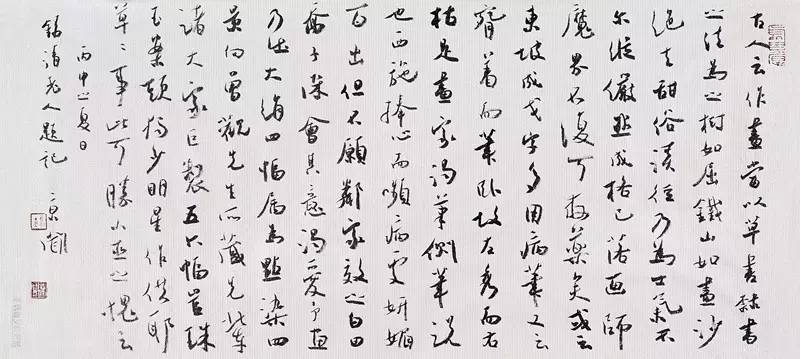 古人云作畫當以草書隸書
之法為之樹如屈鐵山如畫沙
絕去甜俗蹊徑乃為士氣不
尔縱儼然成格已落画師
魔界不復可救藥矣或云
東坡成戈字多用病筆又云
著而筆卧故左秀而右
枯是畫家渴筆側筆説
也西施捧心而嚬病處妍媚
百出但不願鄰家效之白田
喬子深會其意渴愛予畫
乃出大绢四幅属為點染四
黄向曾觀先生所藏先輩
諸大家巨製五六幅皆珠
玉案頭得少明星作供耶
草々事此可勝小巫之愧云
丙申之夏日
老人題記